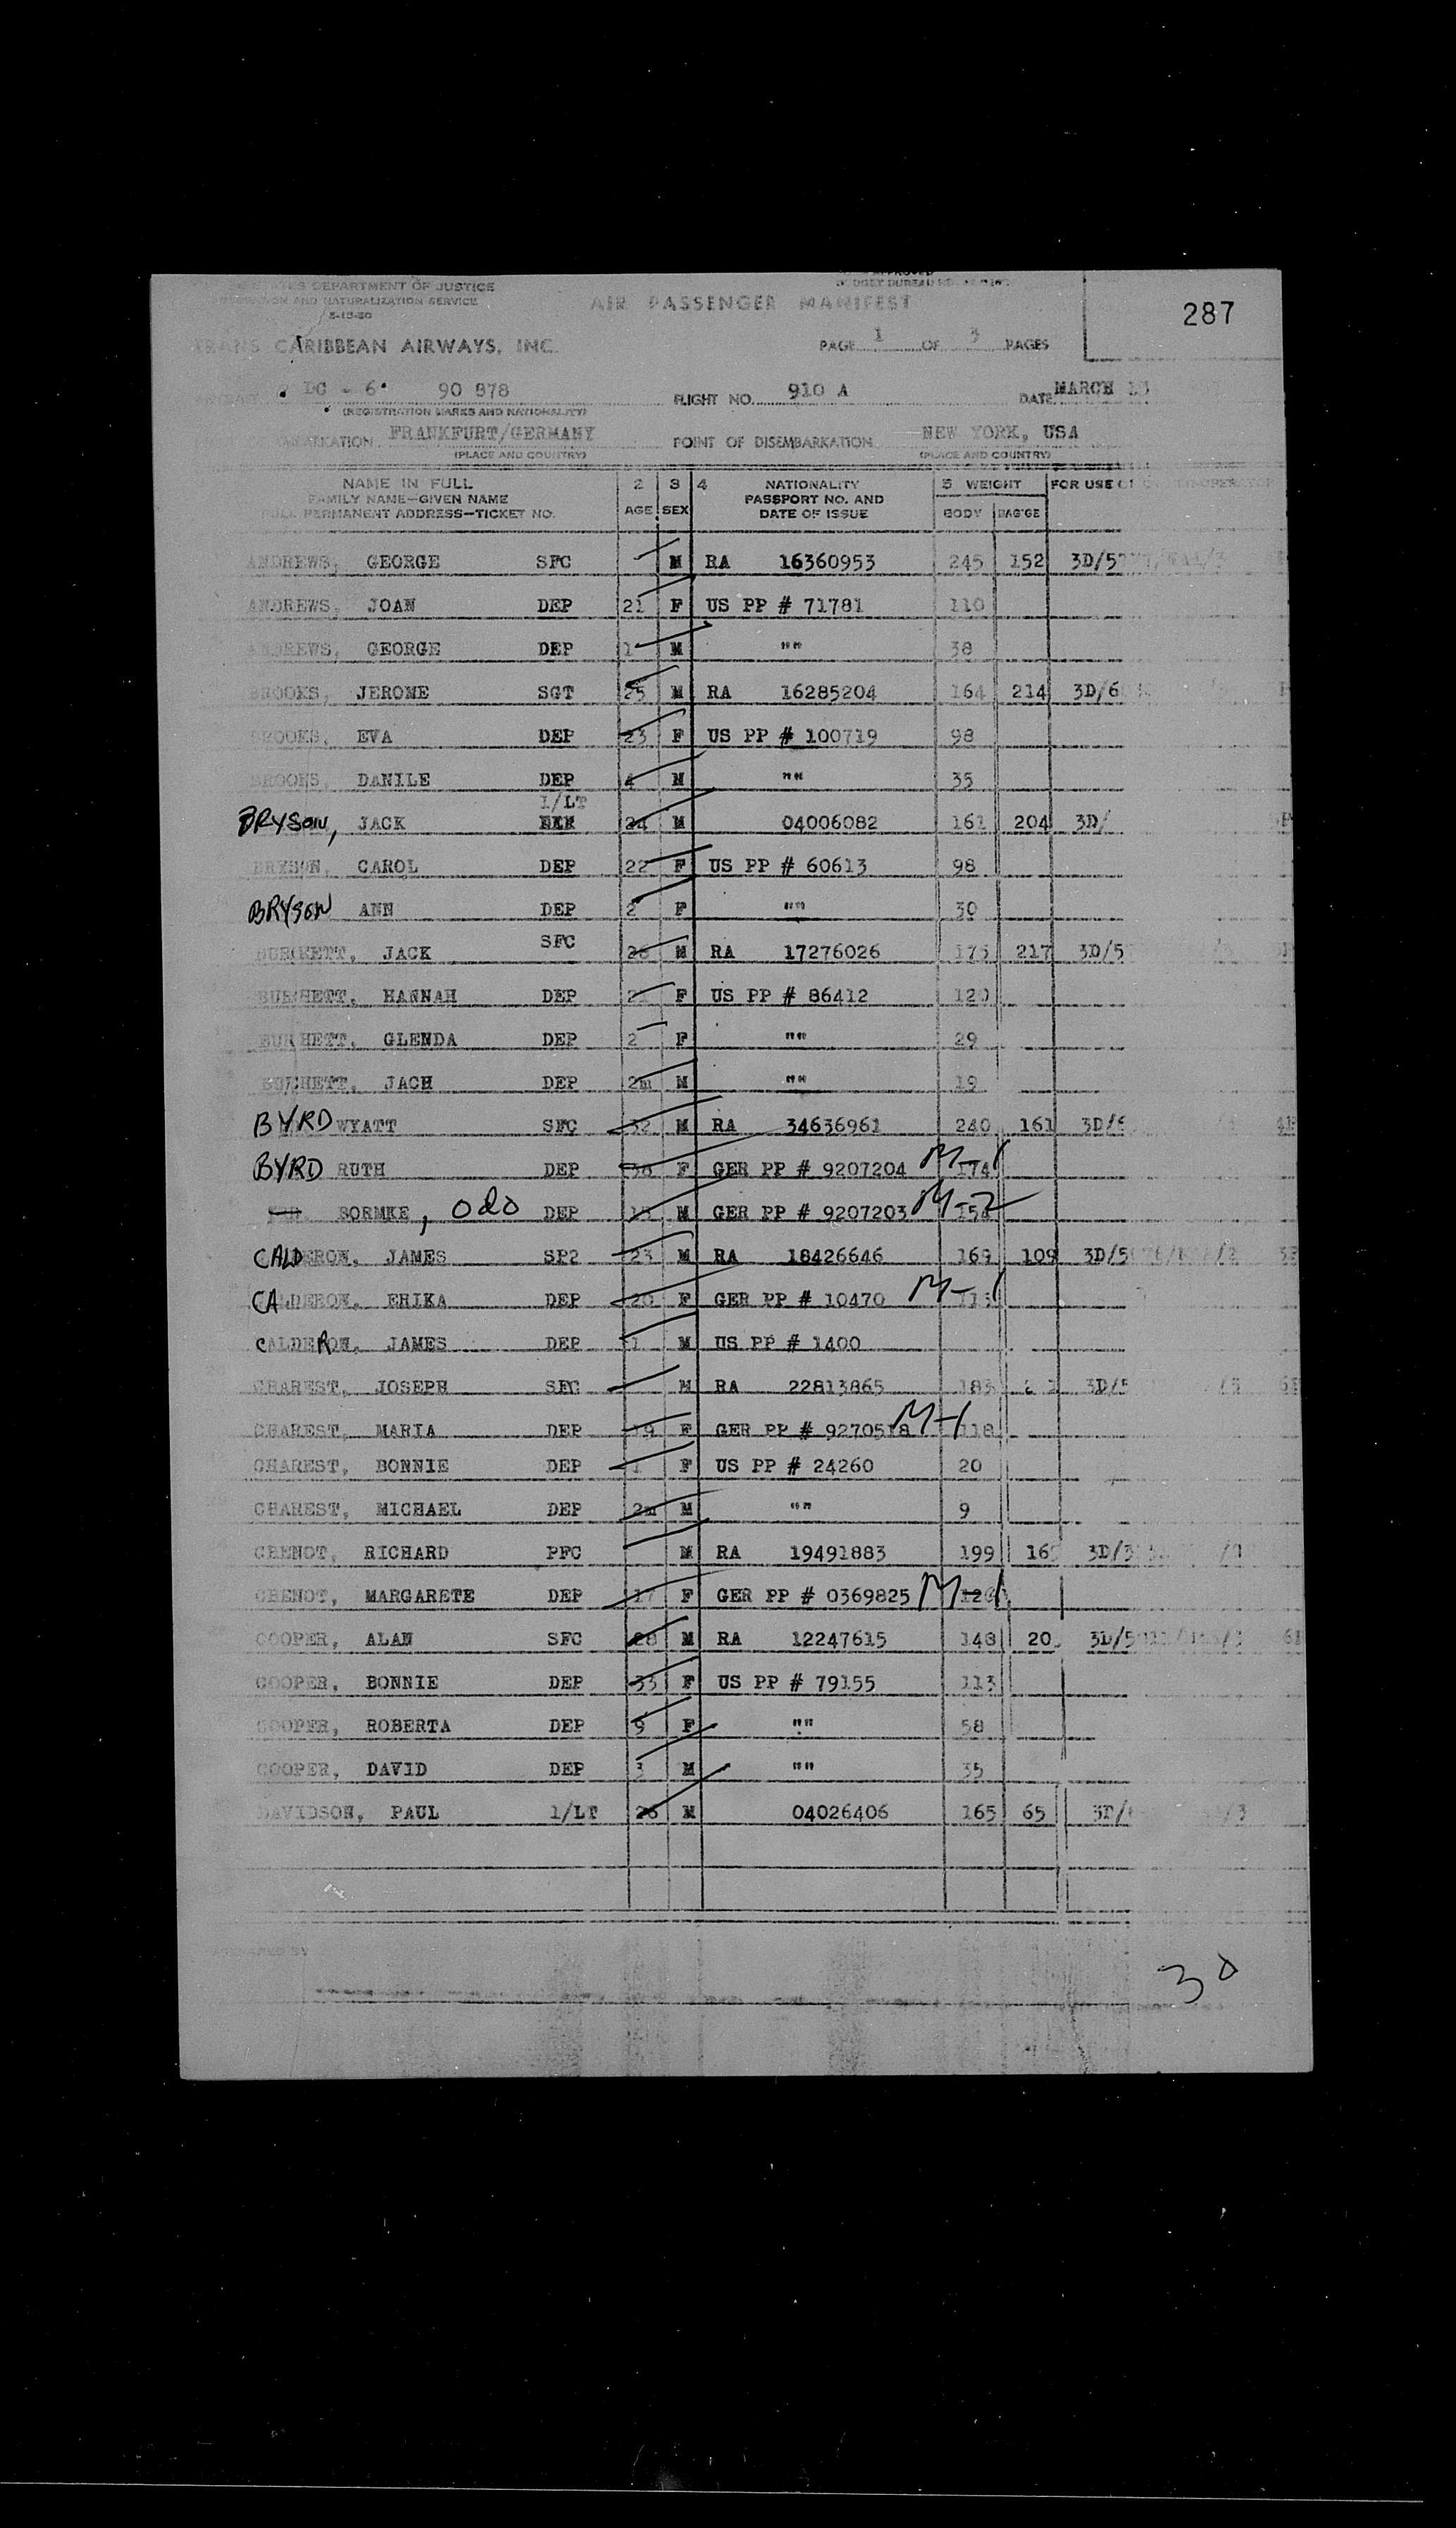 STATES DEPARTMENT OF JUSTICE
AND NATURALIZATION SERVICE
AIR PASSENGER MANIFEST
287
TRANS CARIBBEAN AIRWAYS, INC.
PAGE 1 OF 3 PAGES
DC - 6 90 878 FLIGHT NO. 910 A DATE MARCH
(REGISTRATION MARKS AND NATIONALITY)
FRANKFURT/GERMANY POINT OF DISEMBARKATION NEW YORK, USA
(PLACE AND COUNTRY) (PLACE AND COUNTRY)
NAME IN FULL 2 3 4 NATIONALITY 5 WEIGHT FOR USE
FAMILY NAME—GIVEN NAME PASSPORT NO. AND
FULL PERMANENT ADDRESS—TICKET NO. AGE SEX DATE OF ISSUE BODY BAG'GE
ANDREWS, GEORGE SFC M RA 16360953 245 152 3D/5
ANDREWS, JOAN DEP 21 F US PP # 71781 110
ANDREWS, GEORGE DEP 1 M "" 38
BROOKS, JEROME SGT 25 M RA 16285204 164 214 3D/6
BROOKS, EVA DEP 23 F US PP # 100719 98
BROOKS, DANILE DEP 4 M "" 35
1/LT
BRYSON, JACK 24 M 04006082 161 204 3D/
BRYSON, CAROL DEP 22 F US PP # 60613 98
BRYSON ANN DEP 2 F "" 30
JACK SFC 26 M RA 17276026 175 217 3D/5
BURHETT, HANNAH DEP F US PP # 86412 120
BURHETT, GLENDA DEP 2 F "" 29
BURHETT, JACH DEP 2m M "" 19
BYRD WYATT SFC 32 M RA 34636961 240 161 3D/
BYRD RUTH DEP F GER PP # 9207204 M-1 174
BORMKE, Odo DEP M GER PP # 9207203 M-2
CALDERON, JAMES SP2 23 M RA 18426646 169 109 3D/5
CALDERON, ERIKA DEP 20 F GER PP # 10470 M-1
CALDERON, JAMES DEP 1 M US PP # 1400
CHAREST, JOSEPH SFC M RA 22813865 185 3D/5
CHAREST, MARIA DEP 19 F GER PP # 9270518 M-1 118
CHAREST, BONNIE DEP 1 F US PP # 24260 20
CHAREST, MICHAEL DEP 2m M "" 9
CHENOT, RICHARD PFC M RA 19491883 199 16 3D/3
CHENOT, MARGARETE DEP 17 F GER PP # 0369825 M-1
COOPER, ALAN SFC 28 M RA 12247615 148 20 3D/5
COOPER, BONNIE DEP 33 F US PP # 79155 113
COOPER, ROBERTA DEP 9 F "" 58
COOPER, DAVID DEP 3 M "" 35
DAVIDSON, PAUL 1/LT 26 M 04026406 165 65 3D/
30